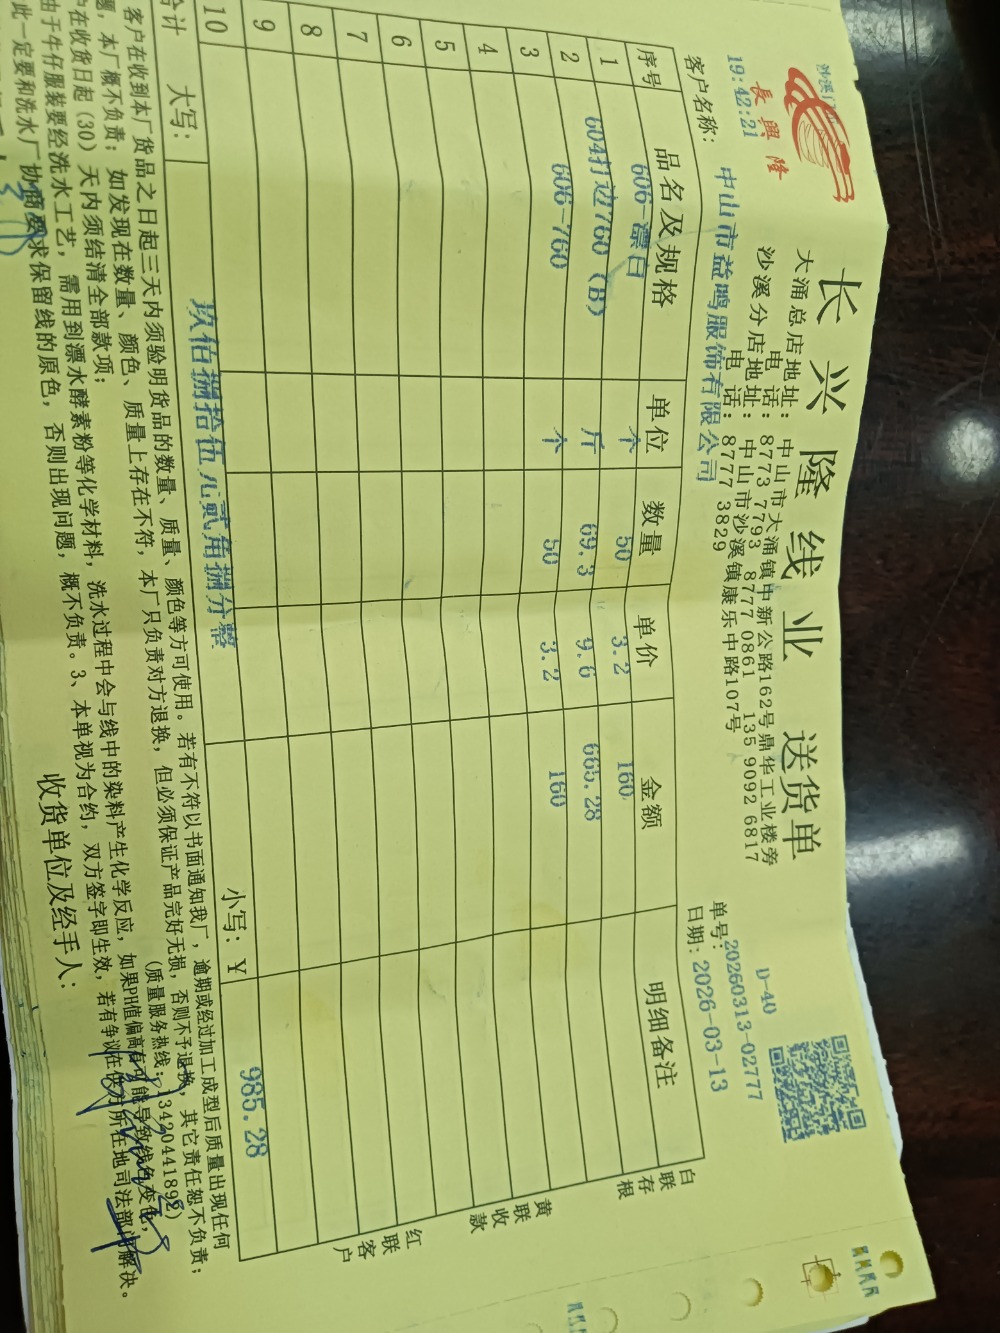 長興隆
长兴隆线业 送货单
大涌总店地址: 中山市大涌镇中新公路162号鼎华工业楼旁
电 话: 8773 7793 8777 0861 135 9092 6817
沙溪分店地址: 中山市沙溪镇康乐中路107号
电 话: 8777 3829
D-40
19:42:21
单号: 20260313-02777
客户名称: 中山市益鸣服饰有限公司
日期: 2026-03-13
序号 品名及规格 单位 数量 单价 金额 明细备注
1 606-漂白 个 50 3.2 160
2 604打边760 (B) 斤 69.3 9.6 665.28
3 606-760 个 50 3.2 160
4
5
6
7
8
9
10
合计 大写: 玖佰捌拾伍元贰角捌分整 小写: ¥ 985.28
白联存根
黄联收款
红联客户
客户在收到本厂货品之日起三天内须验明货品的数量、质量、颜色等方可使用。若有不符以书面通知我厂,逾期或经过加工成型后质量出现任何
题,本厂概不负责; 如发现在数量、颜色、质量上存在不符,本厂只负责对方退换,但必须保证产品完好无损,否则不予退换,其它责任恕不负责;
在收货日起 (30) 天内须结清全部款项; (质量服务热线: 13420441892)
由于牛仔服装要经洗水工艺,需用到漂水酵素粉等化学材料,洗水过程中会与线中的染料产生化学反应,如果PH值偏高有可能导致线色变色,
此一定要和洗水厂协商要求保留线的原色,否则出现问题,概不负责。3、本单视为合约,双方签字即生效,若有争议在供方所在地司法部门解决。
收货单位及经手人: